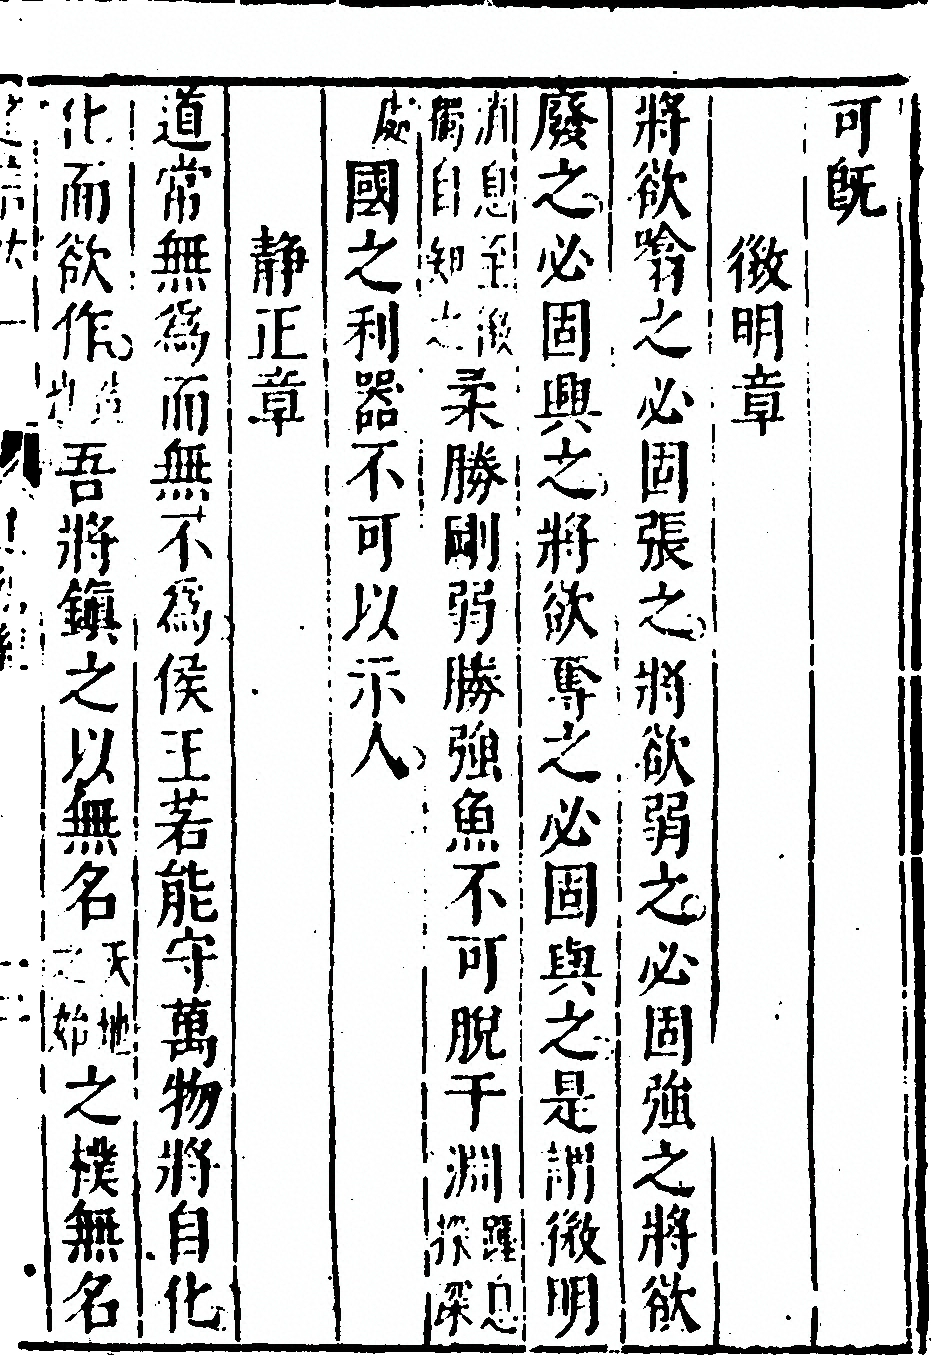 可旣
微明章
將欲噏之必固張之將欲弱之必固強之將欲
廢之必固興之將欲奪之必固與之是謂微明
消息至微獨自知之柔勝剛弱勝強魚不可脫于淵踵息探深
處國之利器不可以示人
静正章
道常無爲而無不爲侯王若能守萬物將自化
化而欲作吾將鎮之以無名天地之始之樸無名